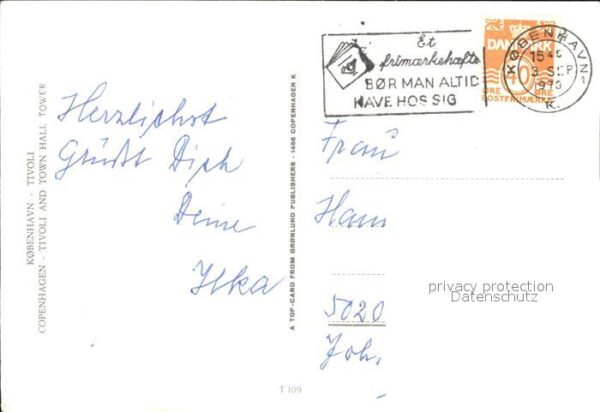 KØBENHAVN - TIVOLI
COPENHAGEN - TIVOLI AND TOWN HALL TOWER
Herzlichst
Grüßt Dich
Deine
Ilka
A TOP-CARD FROM GRØNLUND PUBLISHERS - 1466 COPENHAGEN K
T 109
Et
frimærkehæfte
BØR MAN ALTID
HAVE HOS SIG
KØBENHAVN
1545
3 SEP
1973
K.
DANMARK
40
ØRE ØRE
POSTFRIMÆRKE
Frau
Hans
5020
privacy protection
Datenschutz